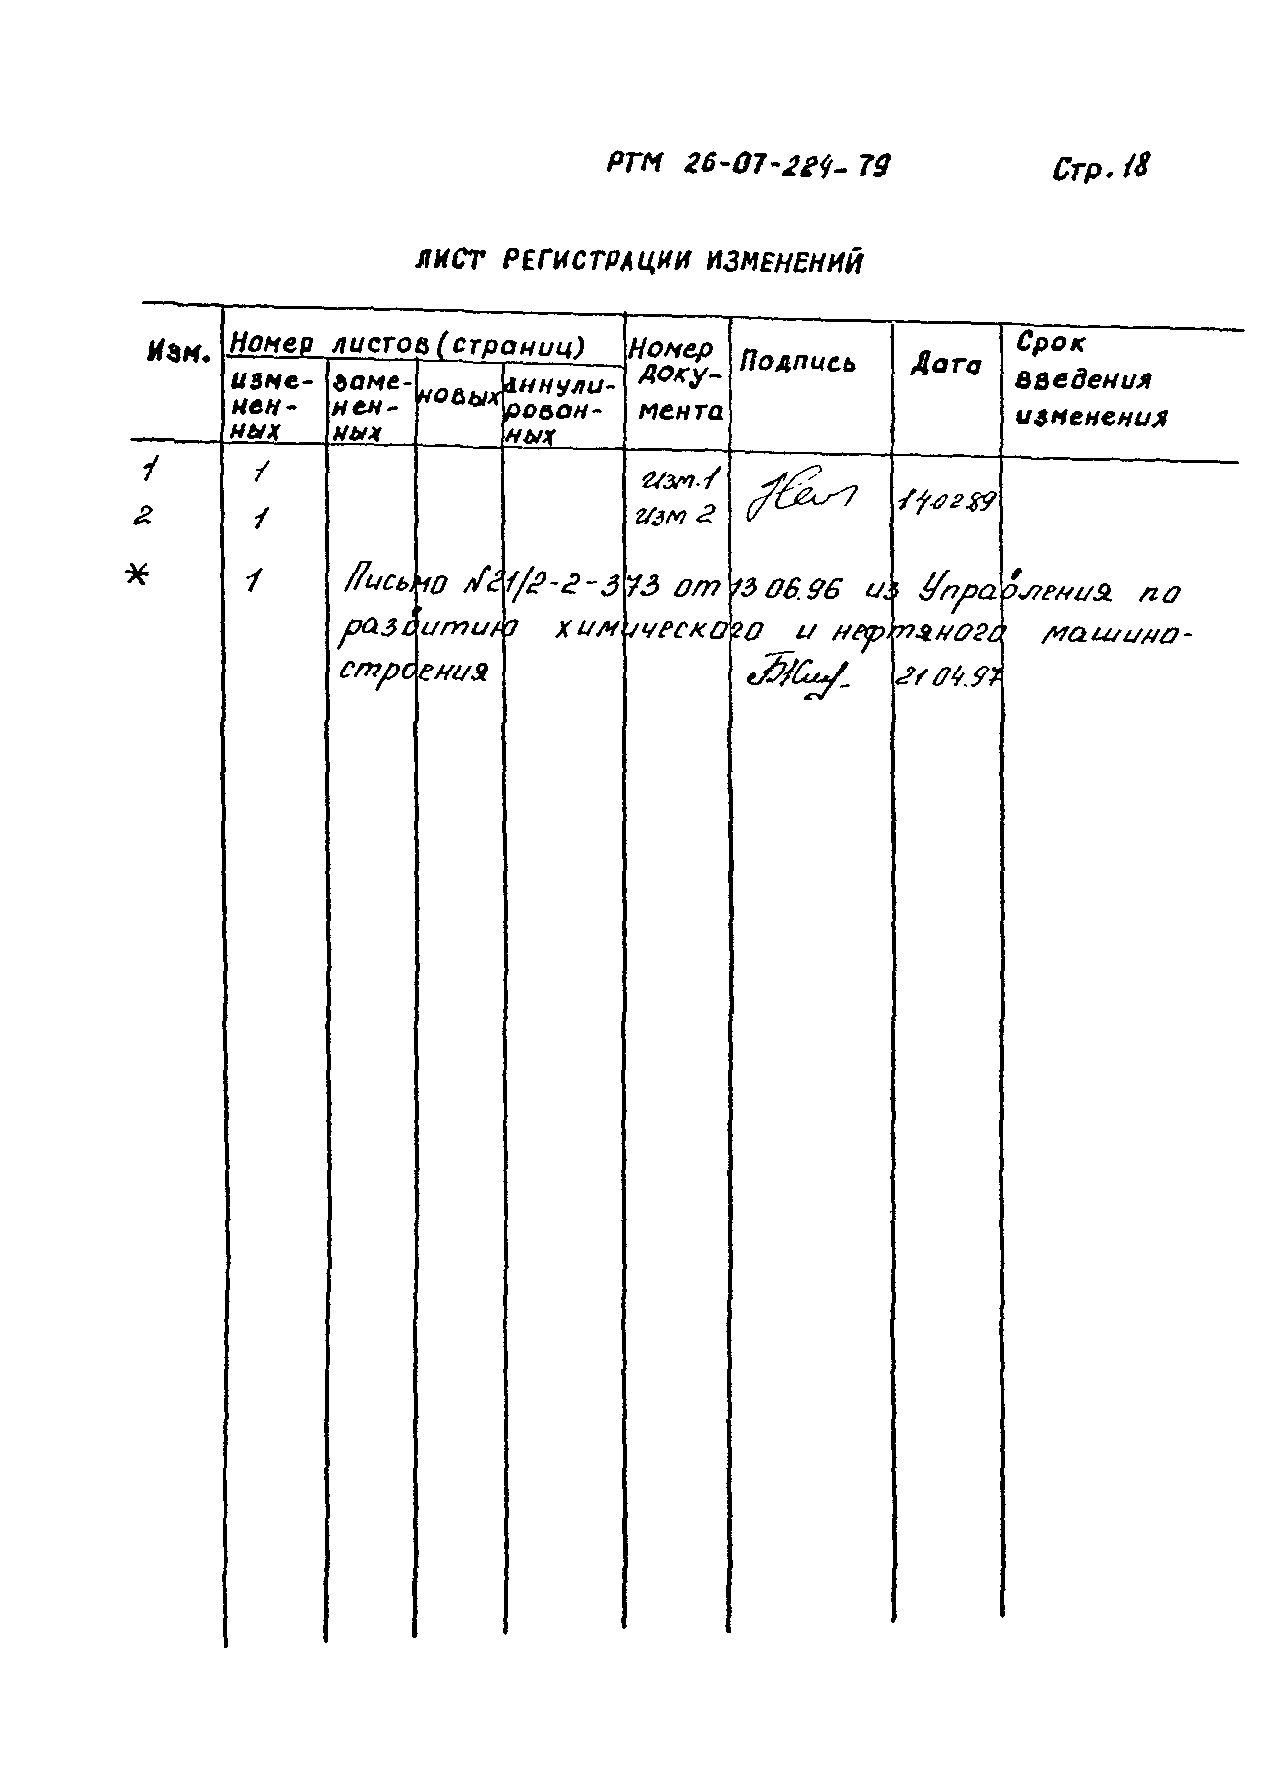 РТМ 26-07-224-79 Стр. 18
ЛИСТ РЕГИСТРАЦИИ ИЗМЕНЕНИЙ
Изм.
Номер листов (страниц)
изме-
нен-
ных
заме-
нен-
ных
новых
аннули-
рован-
ных
Номер
доку-
мента
Подпись
Дата
Срок
введения
изменения
1 1 Изм.1
14.02.89
2 1 Изм 2
* 1 Письмо №21/2-2-373 от 13.06.96 из Управления по
развитию химического и нефтяного машино-
строения 21.04.97